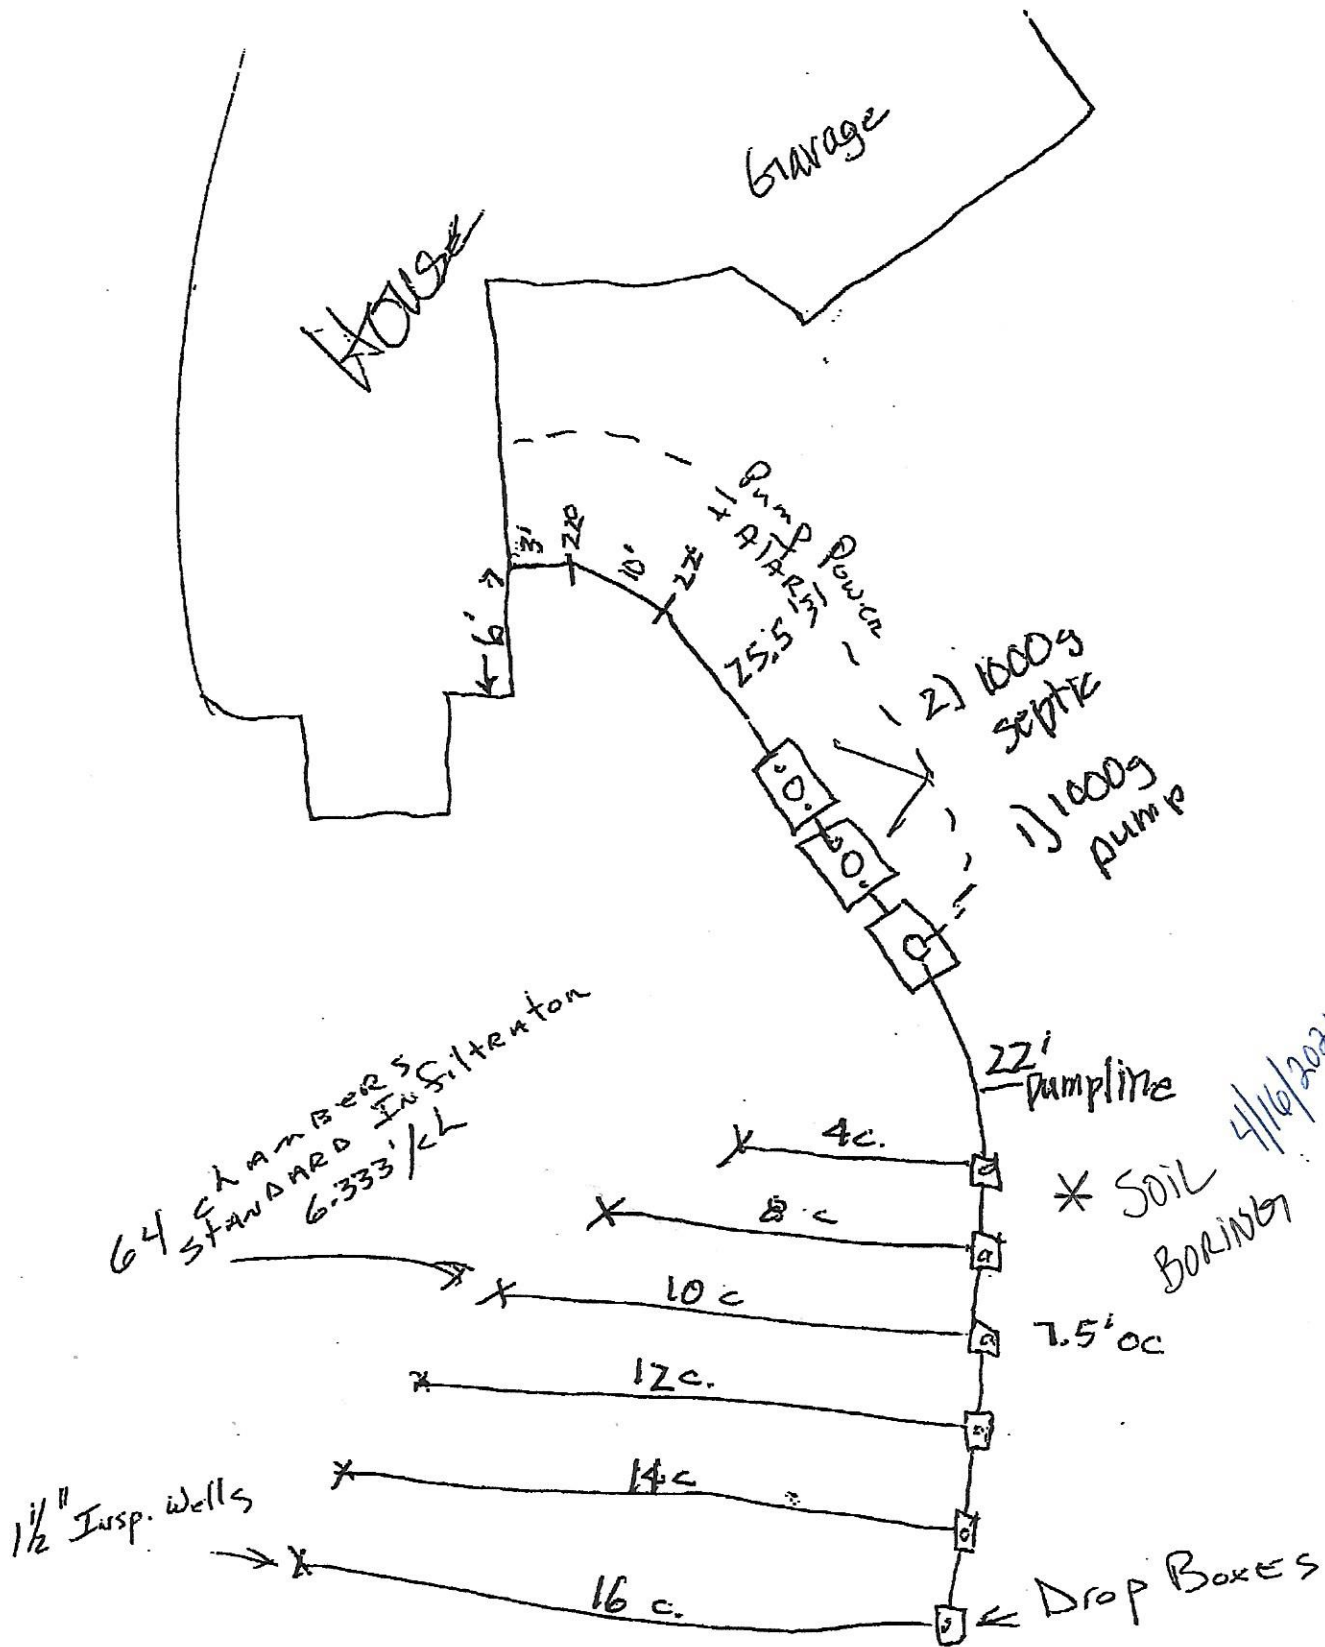 Garage
House
3'
22°
10'
22°
6'
25.5'
Pump Power
+ Alarm
2) 1000g
septic
1) 1000g
pump
22'
pumpline
64 chambers
Standard Infiltrator
6.333'/ch
4c.
* SOIL
BORING
8 c
10 c
7.5' oc
12 c.
14 c
1 1/2" Insp. Wells
16 c.
Drop Boxes